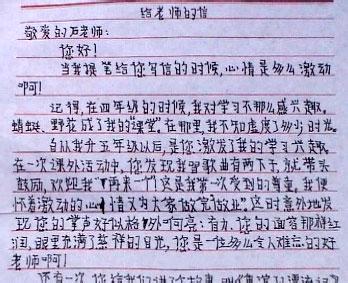 给老师的信
敬爱的石老师:
您好!
当我提笔给您写信的时候,心情是多么激动
啊!
记得,在四年级的时候,我对学习不那么感兴趣。
蜻蜓、野花成了我的"课堂"。在那里,我不知虚度了多少时光。
自从我升五年级以后,是您激发了我的学习兴趣。
在一次课外活动中,您发现我唱歌曲有两下子,就带头
鼓励,欢迎我"再来一个"这是我第一次受到的尊重,我便
怀着激动的心情又为大家做完 这时意外地发
现您的掌声好似格外响亮;有力,您的面容那样红
润,眼里充满了慈祥的目光,您是一位多么令人难忘的好
老师啊!
还有一次,您给我们讲了个故事,叫《鲁滨孙漂流记》